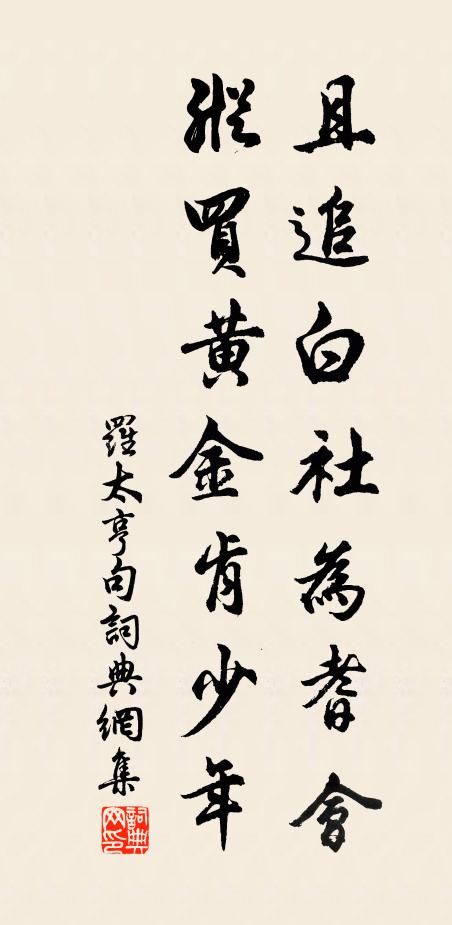 且追白社為耆會
縱買黃金肯少年
羅太亨句詞典網集
詞典網印